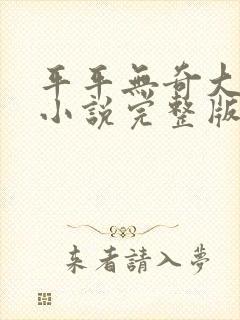 平平無奇大
小說完整版
来者請入夢